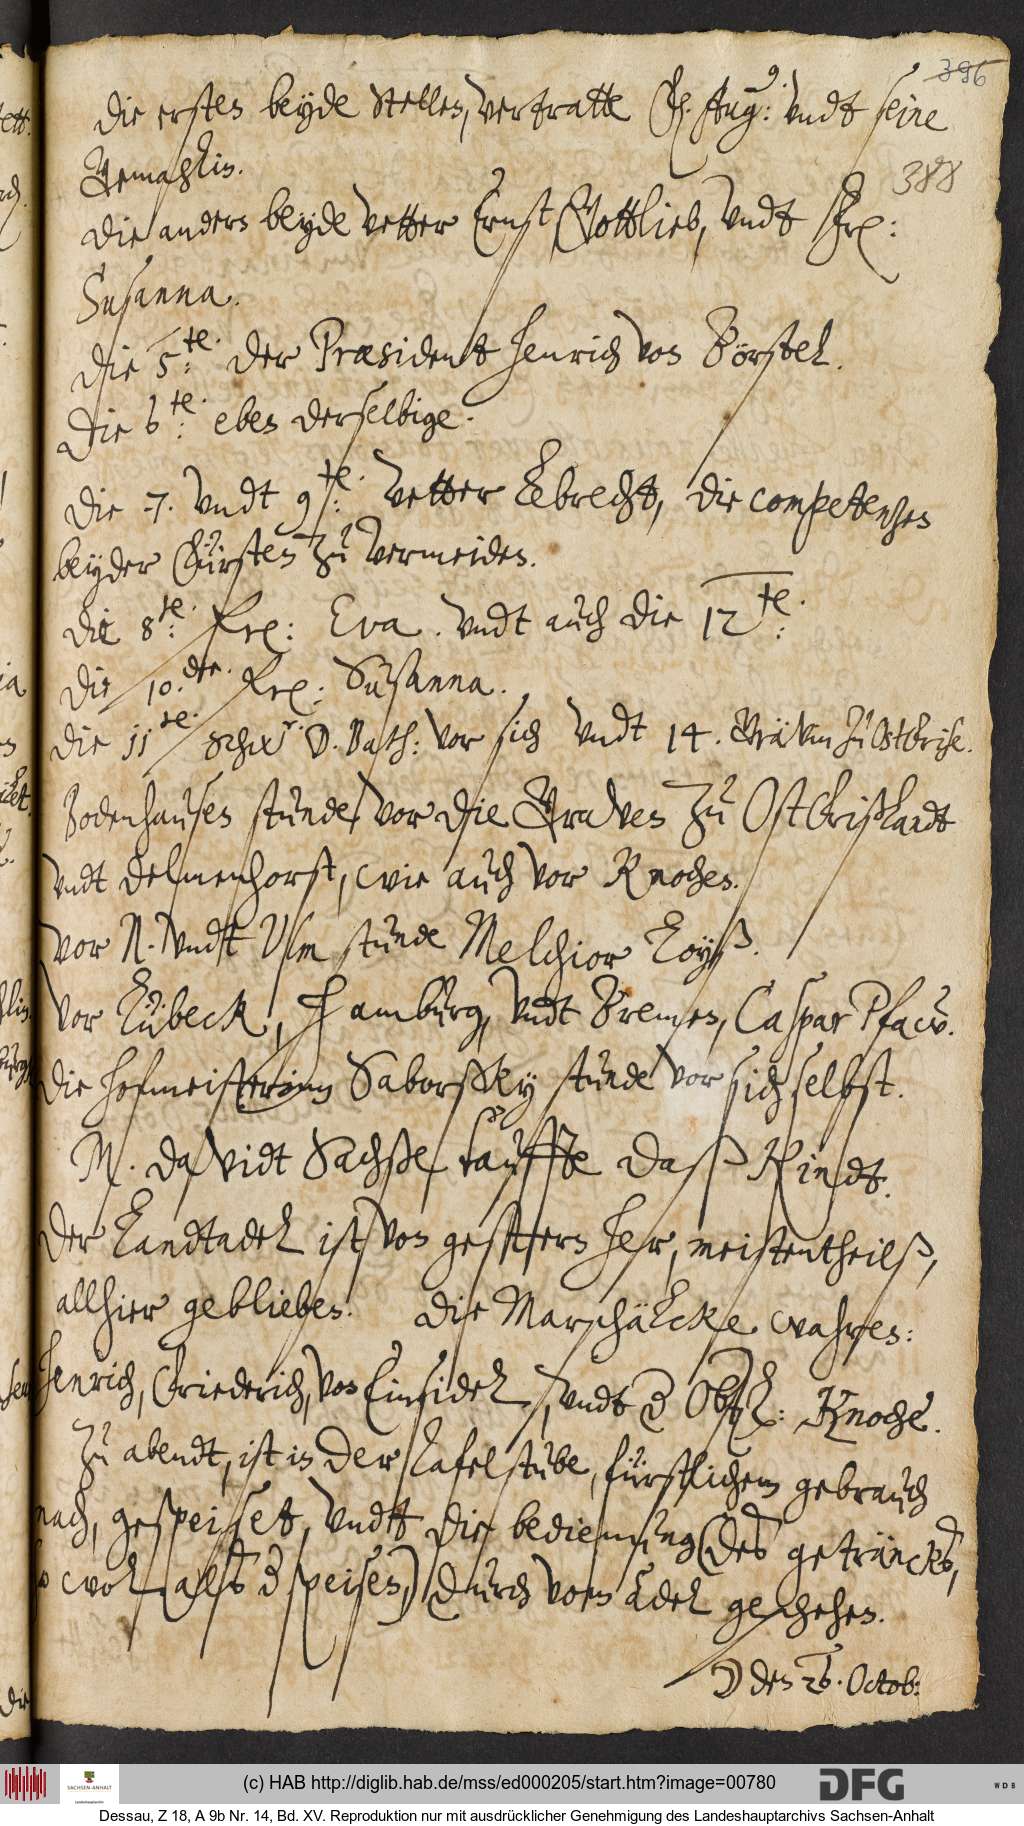 396
388
Die ersten beyde stellen, vertratte F. Aug: undt seine
Gemahlin.
Die andern beyde vetter Ernst Gottlieb, undt Frl:
Susanna.
Die 5.te der Præsident Henrich von Börstel.
Die 6.te eben derselbige.
Die 7. undt 9.te vetter Lebrecht, die competentzen
beyder Fürsten zu vermeiden.
Die 8.te Frl: Eva. undt auch die 12.te
Die 10.de Frl: Susanna.
Die 11.te D. Bath: vor sich undt 14. zu Ostfrise.
Bodenhausen stunde, vor die Graven zu Ostfrißlandt
undt Delmenhorst, wie auch vor Knochen.
vor N. undt Ulm stunde Melchior Loyß.
vor Lübeck, Hamburg, undt Bremen, Caspar Pfaw.
Die hofmeisterinn Saborßky stunde vor sich selbst.
M. David Sachße, tauffte daß Kindt.
Der Landtadel ist von gestern her, meistentheilß,
allhier geblieben. Die Marschälcke wahren:
Henrich, Friederich, von Einsidel, undt d Obrl: Knoche.
Zu abendt, ist in der Tafelstube, fürstlichem gebrauch
nach, gespeiset, undt die bedienung (des geträncks,
so wol alß d speisen,) durch vom adel geschehen.
☽ den 26. Octob:
(c) HAB http://diglib.hab.de/mss/ed000205/start.htm?image=00780
SACHSEN-ANHALT
DFG
WDB
Dessau, Z 18, A 9b Nr. 14, Bd. XV. Reproduktion nur mit ausdrücklicher Genehmigung des Landeshauptarchivs Sachsen-Anhalt